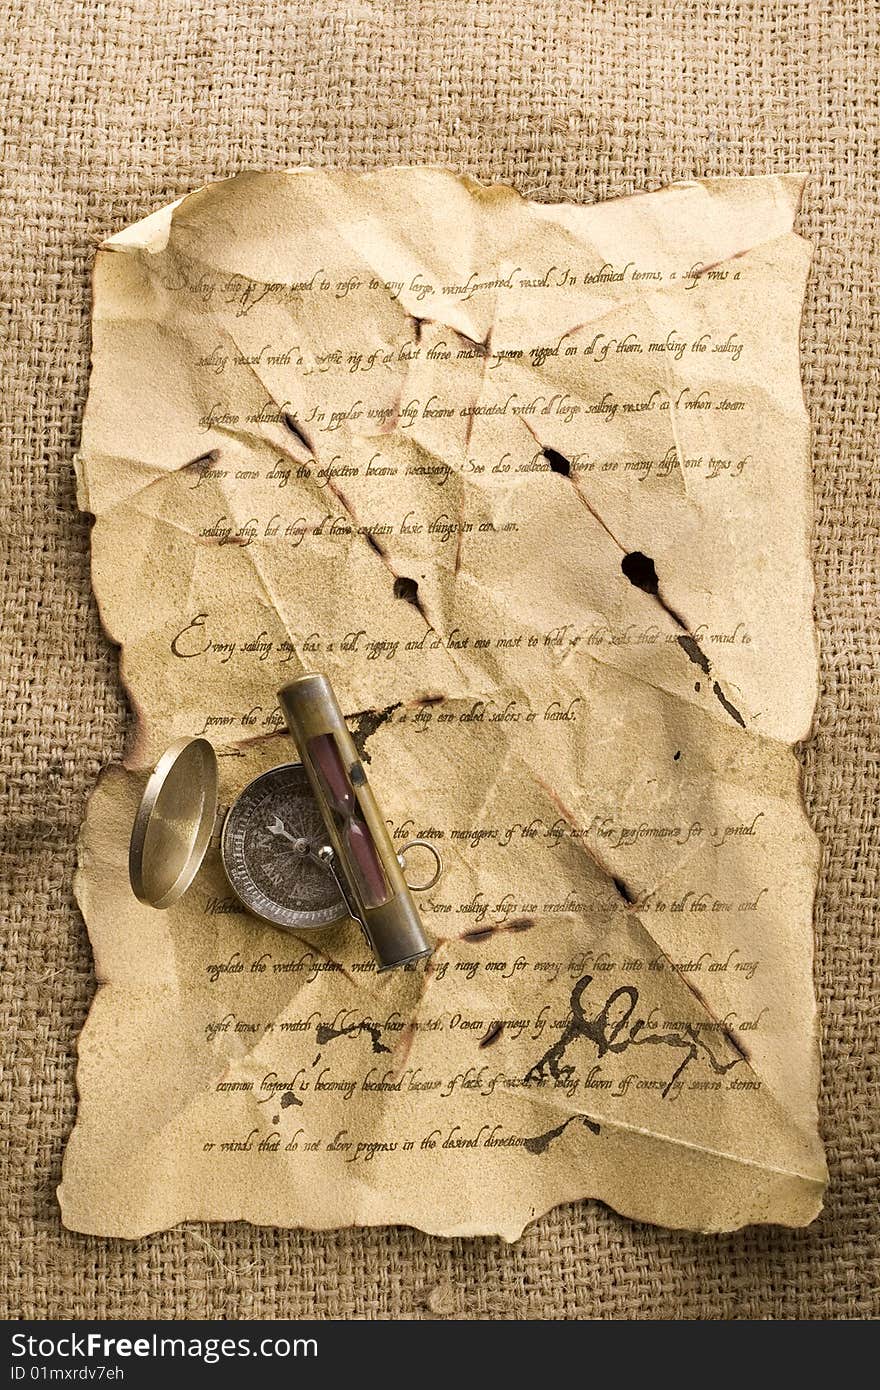 Sailing ship is now used to refer to any large, wind-powered, vessel. In technical terms, a ship was a
sailing vessel with a rig of at least three masts square rigged on all of them, making the sailing
adjective redundant. In popular usage ship became associated with all large sailing vessels and when steam
power came along the adjective became necessary. See also sailboat. There are many different types of
sailing ship, but they all have certain basic things in
Every sailing ship has a hull, rigging and at least one mast to hold up the sails that use the wind to
power the ship. a ship are called sailors or hands.
the active managers of the ship and her performance for a period.
Watches Some sailing ships use traditional ship bells to tell the time and
regulate the watch system, with bell being rung once for every half hour into the watch and rung
eight times at watch end (a four-hour watch). Ocean journeys by sailing can take many months, and
common hazard is becoming becalmed because of lack of wind, or being blown off course by severe storms
or winds that do not allow progress in the desired direction.
StockFreeImages.com
ID 01mxrdv7eh